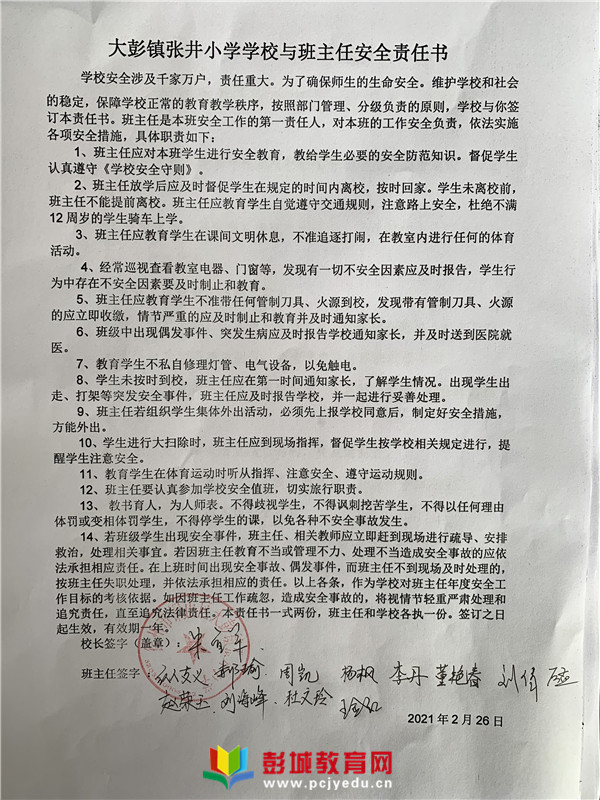 大彭镇张井小学学校与班主任安全责任书
学校安全涉及千家万户，责任重大。为了确保师生的生命安全。维护学校和社会
的稳定，保障学校正常的教育教学秩序，按照部门管理、分级负责的原则，学校与你签
订本责任书。班主任是本班安全工作的第一责任人，对本班的工作安全负责，依法实施
各项安全措施，具体职责如下：
1、班主任应对本班学生进行安全教育，教给学生必要的安全防范知识。督促学生
认真遵守《学校安全守则》。
2、班主任放学后应及时督促学生在规定的时间内离校，按时回家。学生未离校前，
班主任不能提前离校。班主任应教育学生自觉遵守交通规则，注意路上安全，杜绝不满
12周岁的学生骑车上学。
3、班主任应教育学生在课间文明休息，不准追逐打闹，在教室内进行任何的体育
活动。
4、经常巡视查看教室电器、门窗等，发现有一切不安全因素应及时报告，学生行
为中存在不安全因素要及时制止和教育。
5、班主任应教育学生不准带任何管制刀具、火源到校，发现带有管制刀具、火源
的应立即收缴，情节严重的应及时制止和教育并及时通知家长。
6、班级中出现偶发事件、突发生病应及时报告学校通知家长，并及时送到医院就
医。
7、教育学生不私自修理灯管、电气设备，以免触电。
8、学生未按时到校，班主任应在第一时间通知家长，了解学生情况。出现学生出
走、打架等突发安全事件，班主任应及时报告学校，并一起进行妥善处理。
9、班主任若组织学生集体外出活动，必须先上报学校同意后，制定好安全措施，
方能外出。
10、学生进行大扫除时，班主任应到现场指挥，督促学生按学校相关规定进行，提
醒学生注意安全。
11、教育学生在体育运动时听从指挥、注意安全、遵守运动规则。
12、班主任要认真参加学校安全值班，切实旅行职责。
13、教书育人，为人师表。不得歧视学生，不得讽刺挖苦学生，不得以任何理由
体罚或变相体罚学生，不得停学生的课，以免各种不安全事故发生。
14、若班级学生出现安全事件，班主任、相关教师应立即赶到现场进行疏导、安排
救治，处理相关事宜。若因班主任教育不当或管理不力、处理不当造成安全事故的应依
法承担相应责任。在上班时间出现安全事故、偶发事件，而班主任不到现场及时处理的，
按班主任失职处理，并依法承担相应的责任。以上各条，作为学校对班主任年度安全工
作目标的考核依据。如因班主任工作疏忽，造成安全事故的，将视情节轻重严肃处理和
追究责任，直至追究法律责任。本责任书一式两份，班主任和学校各执一份。签订之日
起生效，有效期一年。
校长签字（盖章）：
班主任签字： 周凯 杨枫 李丹 董艳春 刘伟
赵荣玉、刘海峰、杜文玲
2021年2月26日
彭城教育网
www.pcjyedu.cn